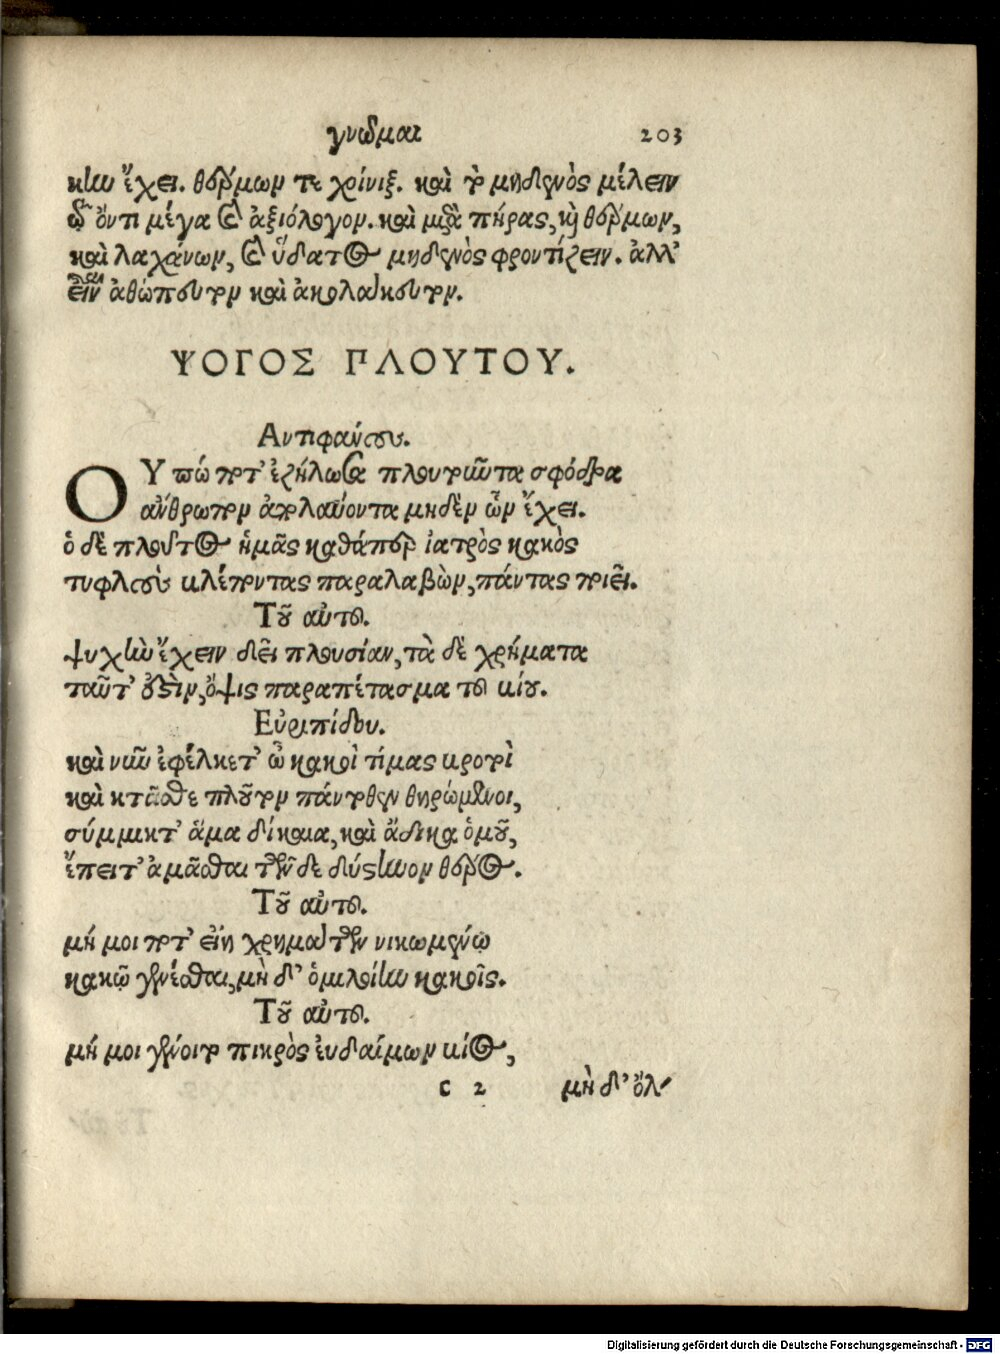 γνῶμαι 203
κὴν ἔχει. θέρμων τε χοίνιξ. καὶ τὸ μηδενὸς μέλειν
ᾧ ὄντι μέγα καὶ ἀξιόλογον. καὶ μετὰ πήρας, καὶ θέρμων,
καὶ λαχάνων, καὶ ὕδατος μηδενὸς φροντίζειν. ἀλλ'
εἶναι ἀθώπευτον καὶ ἀκολάκευτον.
ΨΟΓΟΣ ΠΛΟΥΤΟΥ.
Αντιφάνους.
ΟΥ πώποτ' ἐζήλωσα πλουτοῦντα σφόδρα
ἄνθρωπον ἀπολαύοντα μηδὲν ὧν ἔχει.
ὁ δὲ πλοῦτος ἡμᾶς καθάπερ ἰατρὸς κακὸς
τυφλοὺς βλέποντας παραλαβὼν, πάντας ποιεῖ.
Τοῦ αὐτοῦ.
ψυχὴν ἔχειν δεῖ πλουσίαν, τὰ δὲ χρήματα
ταῦτ' ἔστιν, ὄψις παραπέτασμα τοῦ βίου.
Εὐριπίδου.
καὶ νῦν ἐφέλκετ' ὦ κακοὶ τίμας βροτοὶ
καὶ κτᾶσθε πλοῦτον πάντοθεν θηρώμενοι,
σύμμικτ' ἅμα δίκαια, καὶ ἄδικα ὁμοῦ,
ἔπειτ' ἀμᾶσθαι τῶνδε δύστηνον θέρος.
Τοῦ αὐτοῦ.
μή μοι ποτ' εἴη χρημάτων νικωμένῳ
κακῷ γενέσθαι, μὴ δ' ὁμιλοίην κακοῖς.
Τοῦ αὐτοῦ.
μή μοι γένοιτο πικρὸς ἐυδαίμων βίος,
C 2 μὴ δ' ὄλ-
Digitalisierung gefördert durch die Deutsche Forschungsgemeinschaft - DFG